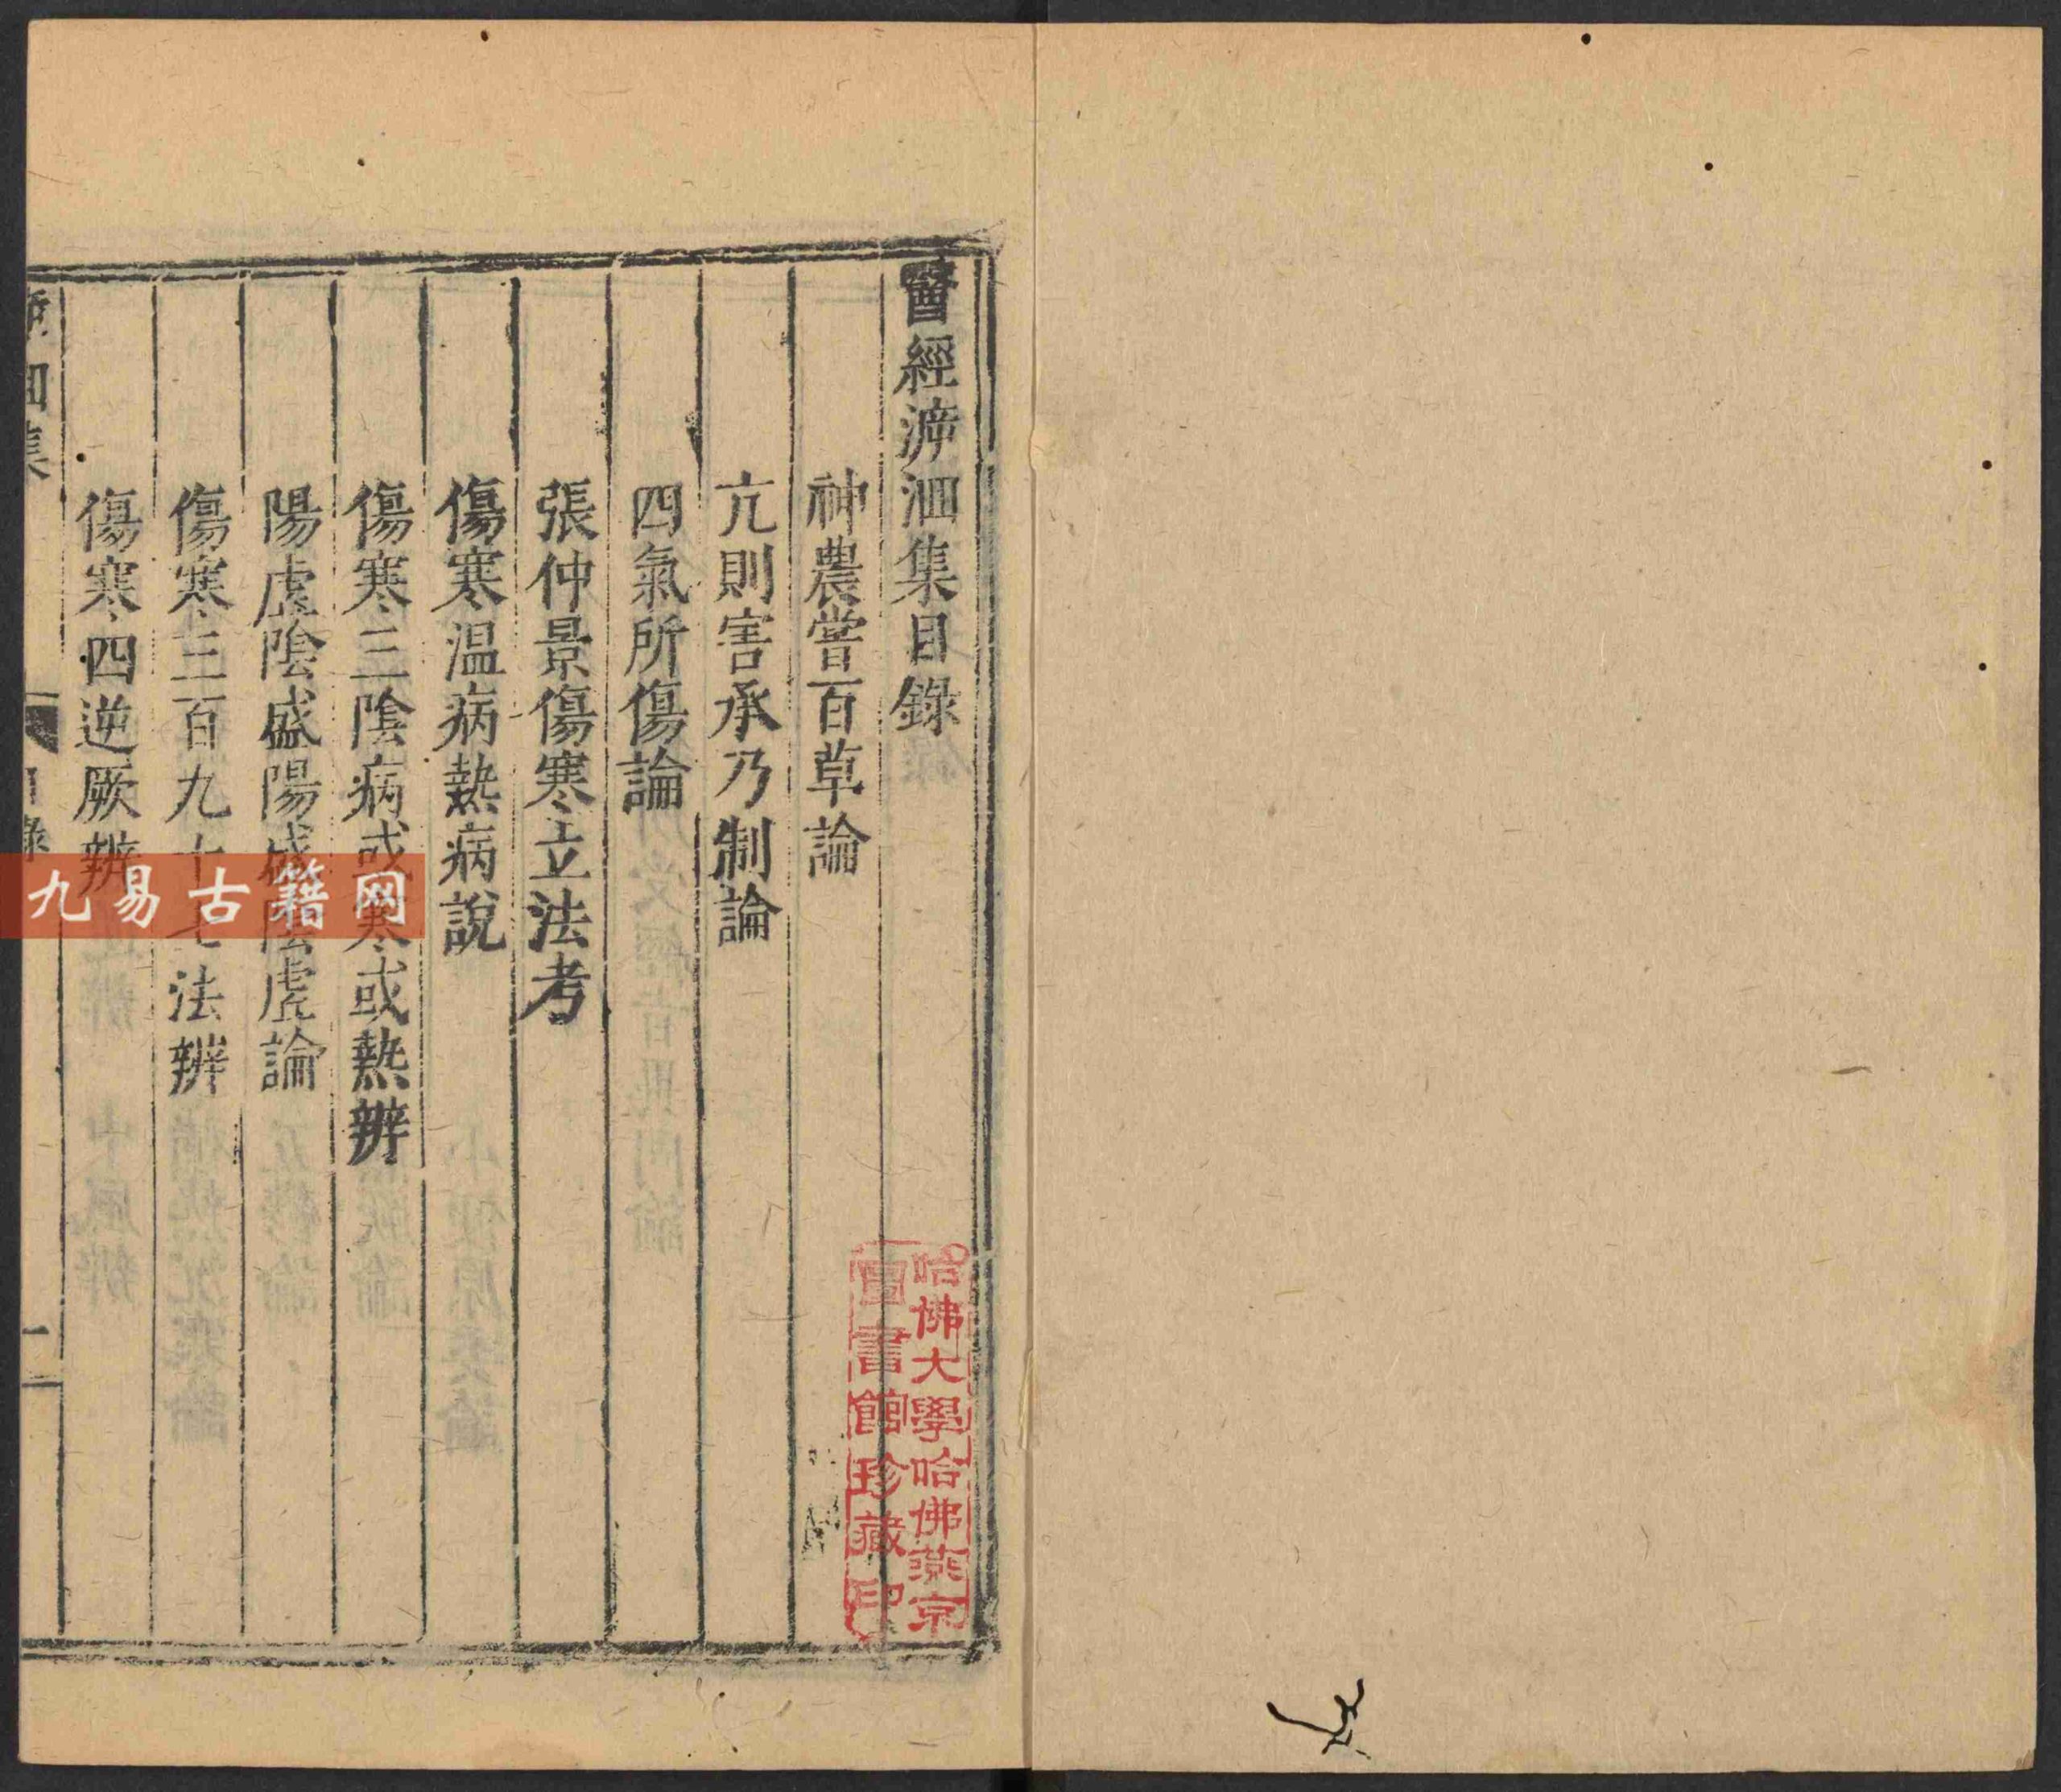 醫經溯洄集目錄
神農嘗百草論
亢則害承乃制論
四氣所傷論
張仲景傷寒立法考
傷寒温病熱病說
傷寒三陰病或寒或熱辨
陽虛陰盛陽盛陰虛論
傷寒三百九十七法辨
傷寒四逆厥辨
洄集
目錄
一
哈佛大學哈佛燕京
圖書館珍藏印
九易古籍网